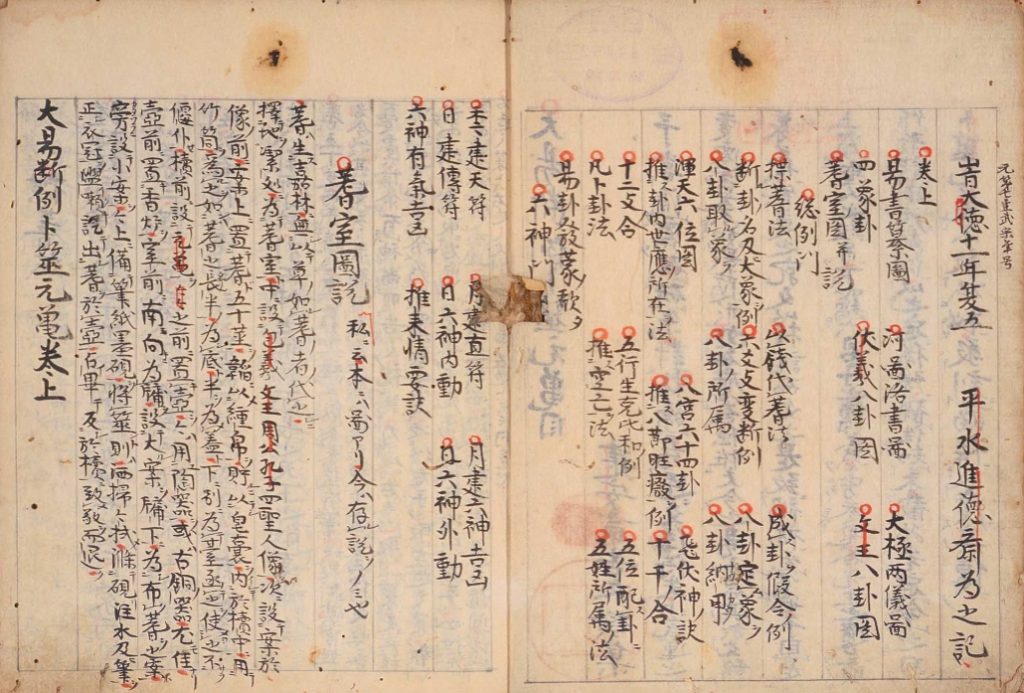 旹大德十一年 平水進德斎為之記
卷上
易書纂圖 河圖洛書圖 大極两儀圖
四象卦 伏義八卦圖 文王八卦圖
蓍室圖并説
総例門
揲蓍法 以錢代蓍法 成卦假令例
断卦名及大象例 六爻文変断例 八卦定象
八卦取象 八卦所属 八卦納甲
渾天六位圖 八宮六十四卦 飛伏神訣
推卦内世應所在法 推八節旺廢例 十干合
十二支合 五行生克比和例 五位配卦
凡卜卦法 推空亡法 五姓所属法
易卦發蒙歌
六神門
建天符 月建直符 月建六神吉凶
日建傳符 日六神内動 日六神外動
六神有氣吉凶 推来情要訣
蓍室圖説 私云本ニハ圖アリ今ハ存説ノミ也
蓍生吉嘉林無以草如蓍者代之
擇地潔処為蓍室中設包義文王周公孔子四聖人像次設案於
像前案上置蓍五十茎韜以纁帛貯以皂嚢内於櫝中用
竹筒為之如蓍之長半為底半為蓋下別為臺函使之不
偃仆櫝前設元亀之前置壺一用陶器或古銅器尤佳
壺前置香炉室前南向為牗設大案牗下為布蓍之案
旁設小案上備筆紙墨硯將筮則洒掃拭滌硯注水及筆
正衣冠盥訖出蓍於壺占畢反於櫝致敬而退
大易断例卜筮元亀巻上